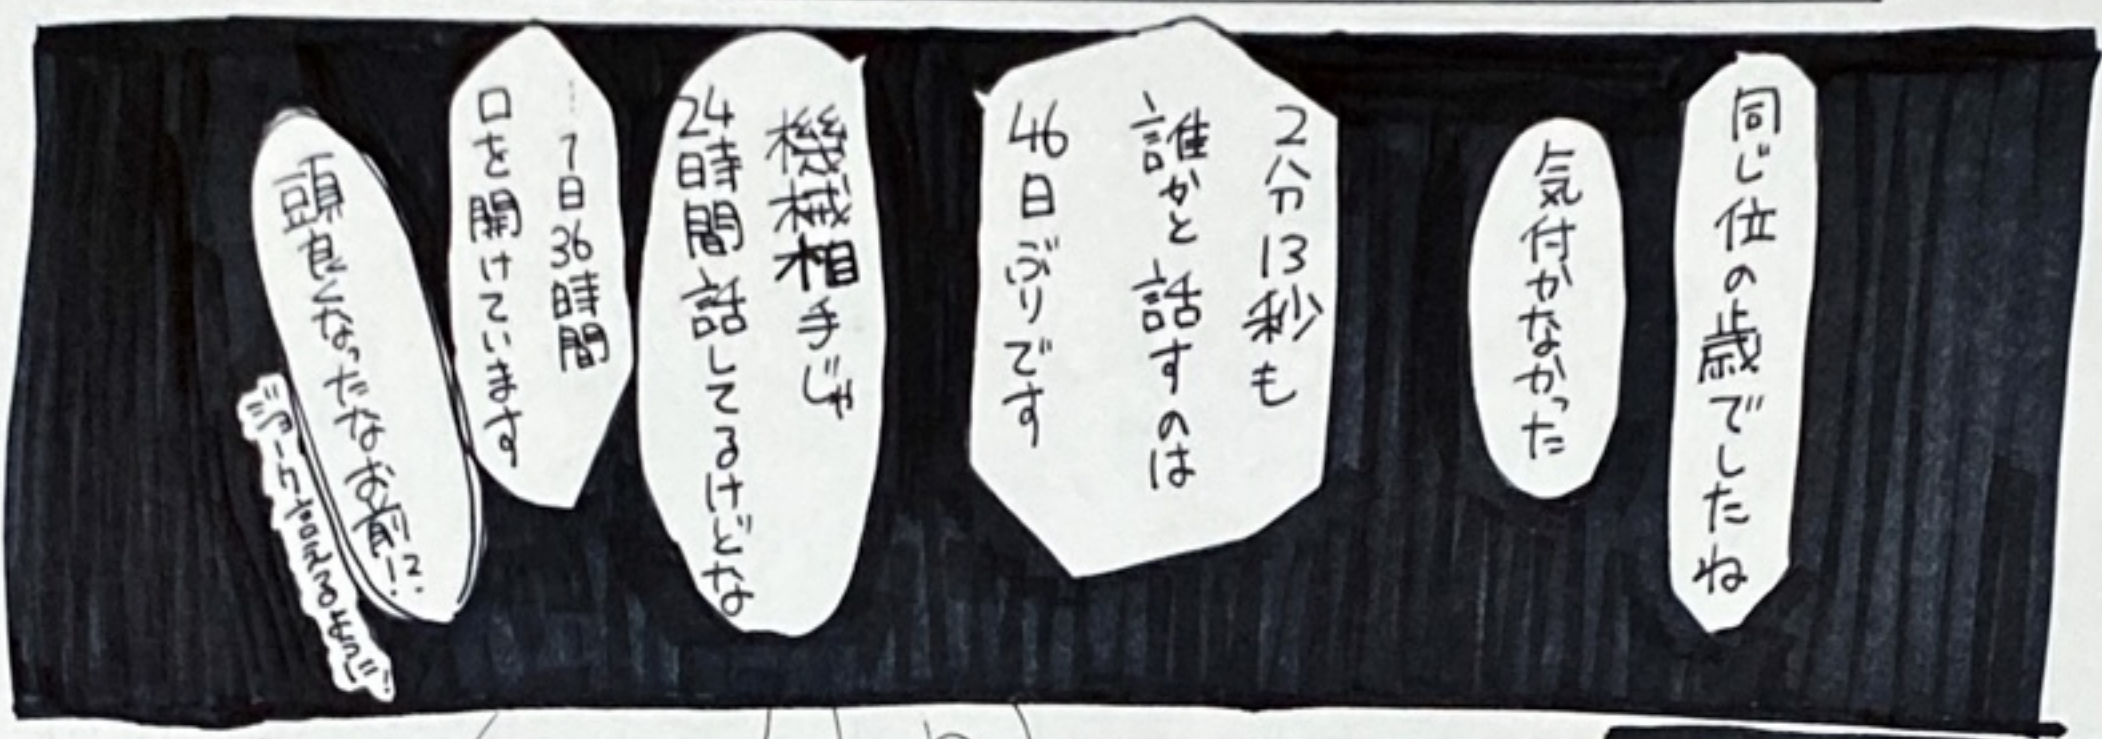 同じ位の歳でしたね
気付かなかった
2分13秒も
誰かと話すのは
46日ぶりです
機械相手じゃ
24時間話してるけどな
…7日36時間
口を開けています
頭良くなっただなお前!?
ジョーク言えるように!